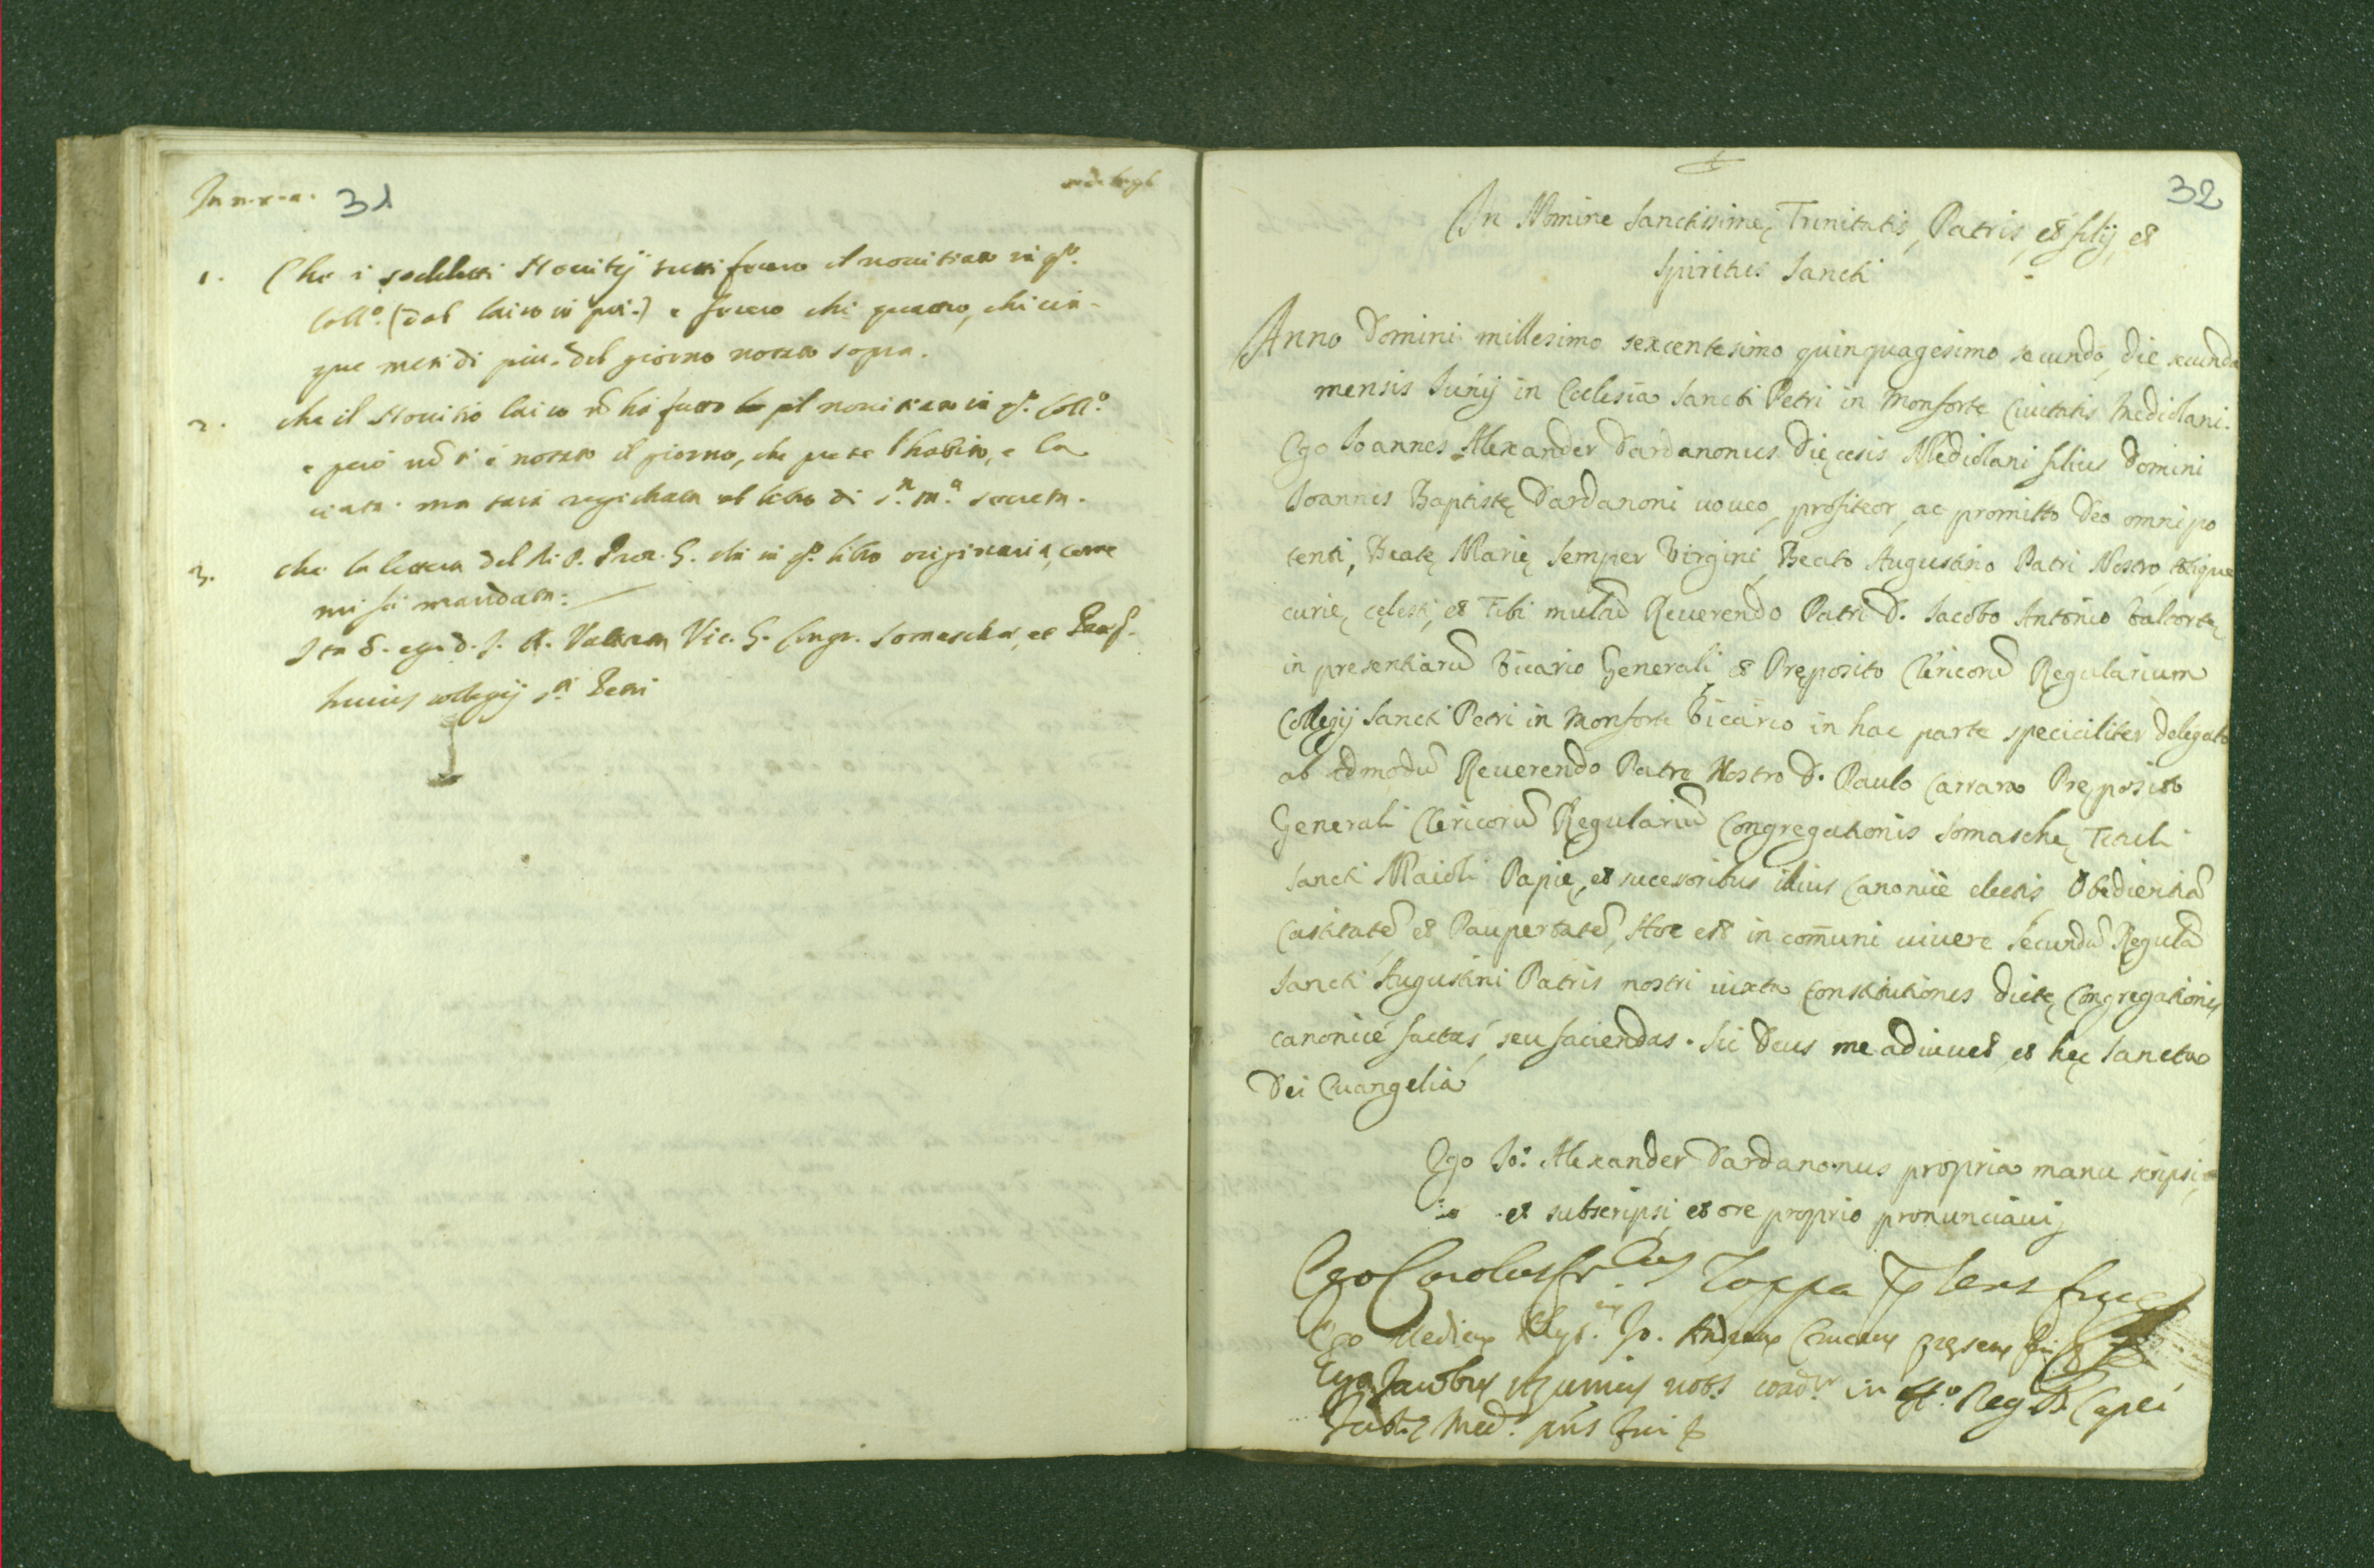 31
1. Che i sodddetti Nouitij tutti fecero il nouitiato in qto.
Collo. (dal laico in poi.) e fecero chi quattro, chi cin-
que mesi di più del giorno notato sopra.
2. che il Nouitio laico nõ hà fatto il nouitiato in qto. Collo.
e però nõ si è notato il giorno, che prese l'habito, e la
uesta. ma sarà registrata al libro di
3. che la lettera del P. Proc. G. stà in qto. libro originaria, come
mi fù mandata:
Vic. G. Congr. Somaschae, et Praep.
huius collegij sti. Petri
32
In Nomine Sanctissimę Trinitatis, Patris, et filij, et
Spiritus Sancti
Anno Domini millesimo sexcentesimo quinquagesimo secundo, die secunda
mensis Iunij in Ecclesia Sancti Petri in Monforte Ciuitatis Mediolani.
Ego Ioannes Alexander Dardanonus Dięcesis Mediolani filius Domini
Ioannis Baptistę Dardanoni uoueo, profiteor, ac promitto Deo omnipo
tenti, Beatę Marię semper Virgini, Beato Augustino Patri Nostro, totique
curię cęlesti, et Tibi multũ Reuerendo Patri D. Iacobo Antonio Valtortę
in presentiarũ Vicario Generali et Pręposito Clericorũ Regularium
Collegij Sancti Petri in Monforte Vicario in hac parte speciciliter delegato
ab admodũ Reuerendo Patre Nostro D. Paulo Carrara Pręposito
Generali Clericorũ Regulariũ Congregationis Somaschę, Tituli
Sancti Maioli Papię, et sucessoribus illius Canonicè electis, Obedientiã
Castitatẽ et Paupertatẽ, Hoc est in com̃uni uiuere secundũ Regulã
Sancti Augustini Patris nostri iuxta Constitutiones dictę Congregationis
canonicè factas, seu faciendas. Sic Deus me adiuuet, et hęc Sancta
Dei Euangelia
Ego Io: Alexander Dardanonus propria manu scripsi,
et subscripsi, et ore proprio pronunciaui
Ego Carolus Toppa
Ego Medicus Phys. Io. Andreas pręsens fui
Ego Jacobus
Med. pñs fui